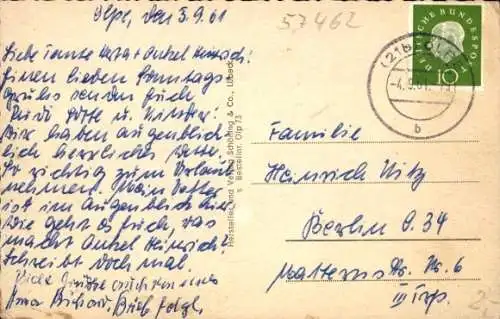 Olpe, den 3.9.61
57462
Liebe Tante Herta + Onkel Heinrich!
Einen lieben Sonntags
gruß senden Euch
u. Kinder.
Wir haben augenblick
lich herrliches Wetter.
So richtig zum Urlaub
nehmen. Mein Vater
ist im Augenblick hier.
Wie geht es Euch, was
macht Onkel Heinrich?
Schreibt doch mal.
Viele Grüße auch von
Oma Brief folgt.
Hersteller und Verlag Schöning & Co., Lübeck
Bestellnr. Olp 73
DEUTSCHE BUNDESPOST
10
-4.9.61
b
Familie
Heinrich
Berlin O.34
Str. Nr. 6
III Trp.
2,